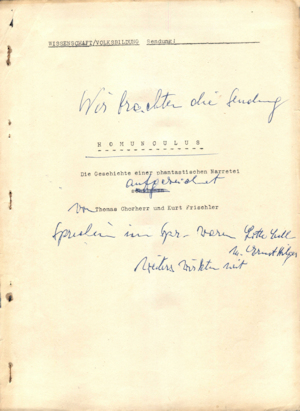 WISSENSCHAFT/VOLKSBILDUNG Sendung:
Wir brachten die Sendung
HOMUNCULUS
Die Geschichte einer phantastischen Narretei
aufgezeichnet
von Thomas Chorherr und Kurt Frischler
Sprecher im waren Lotte
u. Ernst
weiters wirkten mit